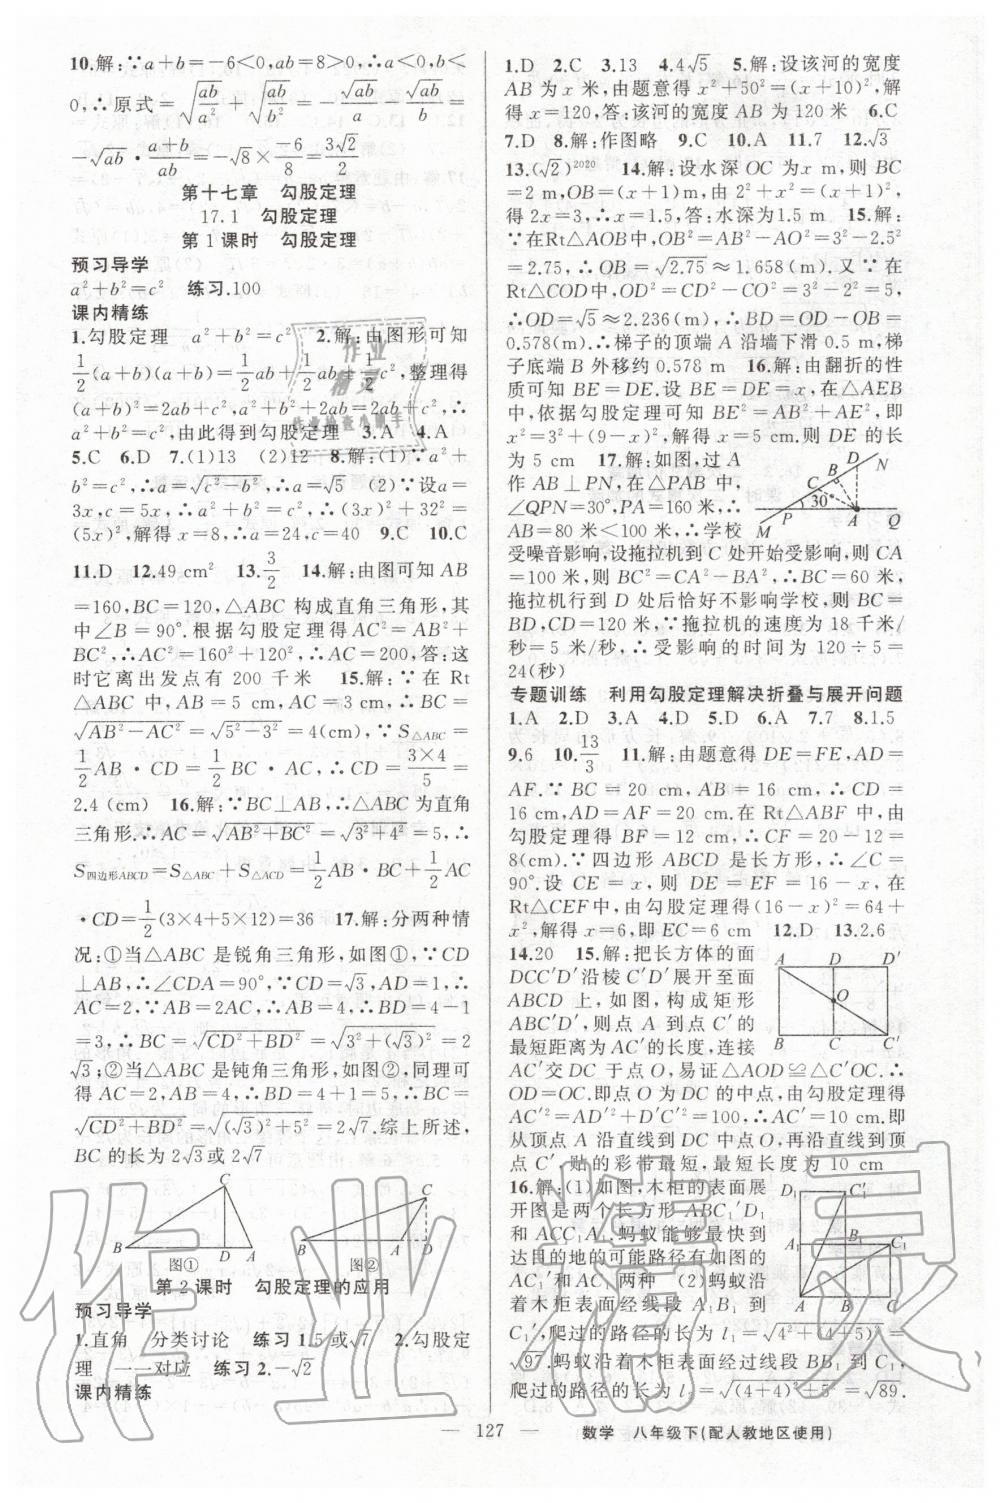 10.解:∵a+b=-6<0,ab=8>0,∴a<0,b<
0,∴原式=√(ab/a²)+√(ab/b²)=-√ab/a-√ab/b=
-√ab·(a+b)/ab=-√8×(-6)/8=3√2/2
第十七章 勾股定理
17.1 勾股定理
第1课时 勾股定理
预习导学
a²+b²=c² 练习.100
课内精练
1.勾股定理 a²+b²=c² 2.解:由图形可知
1/2(a+b)(a+b)=1/2ab+1/2ab+1/2c²,整理得
(a+b)²=2ab+c²,a²+b²+2ab=2ab+c²,∴
a²+b²=c²,由此得到勾股定理 3.A 4.A
5.C 6.D 7.(1)13 (2)12 8.解:(1)∵a²=
c²-b²,∴a=√(c²-b²),∴a=√5 (2)∵设a=
3x,c=5x,∵a²+b²=c²,∴(3x)²+32²=
(5x)²,解得x=8,∴a=24,c=40 9.C 10.C
11.D 12.49 cm² 13.3/2 14.解:由图可知AB
=160,BC=120,△ABC构成直角三角形,其
中∠B=90°.根据勾股定理得AC²=AB²+
BC²,∴AC²=160²+120²,∴AC=200,答:这
时它离出发点有200千米 15.解:∵在Rt
△ABC中,∴AB=5 cm,AC=3 cm,∴BC=
√(AB²-AC²)=√(5²-3²)=4(cm),∵S△ABC=
1/2AB·CD=1/2BC·AC,∴CD=(3×4)/5=
2.4(cm) 16.解:∵BC⊥AB,∴△ABC为直角
三角形.∴AC=√(AB²+BC²)=√(3²+4²)=5,∴
S四边形ABCD=S△ABC+S△ACD=1/2AB·BC+1/2AC
·CD=1/2(3×4+5×12)=36 17.解:分两种情
况:①当△ABC是锐角三角形,如图①,∵CD
⊥AB,∴∠CDA=90°,∵CD=√3,AD=1,∴
AC=2,∵AB=2AC,∴AB=4,∴BD=4-1
=3,∴BC=√(CD²+BD²)=√(3²+(√3)²)=2
√3;②当△ABC是钝角三角形,如图②,同理可
得:AC=2,AB=4,∴BD=4+1=5,∴BC=
√(CD²+BD²)=√((√3)²+5²)=2√7.综上所述,
BC的长为2√3或2√7
C
B
D
A
图①
C
B
A
D
图②
第2课时 勾股定理的应用
预习导学
1.直角 分类讨论 练习1.5或√7 2.勾股定
理 一一对应 练习2.-√2
课内精练
1.D 2.C 3.13 4.4√5 5.解:设该河的宽度
AB为x米,由题意得x²+50²=(x+10)²,解
得x=120,答:该河的宽度AB为120米 6.C
7.D 8.解:作图略 9.C 10.A 11.7 12.√3
13.(√2)²⁰²⁰ 14.解:设水深OC为x m,则BC
=2 m,OB=OA=(x+1)m,由2²+x²=(x+1)²,
得2x=3,∴x=1.5,答:水深为1.5 m 15.解:
∵在Rt△AOB中,OB²=AB²-AO²=3²-2.5²
=2.75,∴OB=√2.75≈1.658(m).又∵在
Rt△COD中,OD²=CD²-CO²=3²-2²=5,
∴OD=√5≈2.236(m),∴BD=OD-OB=
0.578(m).∴梯子的顶端A沿墙下滑0.5 m,梯
子底端B外移约0.578 m 16.解:由翻折的性
质可知BE=DE.设BE=DE=x,在△AEB
中,依据勾股定理可知BE²=AB²+AE²,即
x²=3²+(9-x)²,解得x=5 cm.则DE的长
为5 cm 17.解:如图,过A
作AB⊥PN,在△PAB中,
∠QPN=30°,PA=160米,∴
AB=80米<100米,∴学校
受噪音影响,设拖拉机到C处开始受影响,则CA
=100米,则BC²=CA²-BA²,∴BC=60米,
拖拉机行到D处后恰好不影响学校,则BC=
BD,CD=120米,∵拖拉机的速度为18千米/
秒=5米/秒,∴受影响的时间为120÷5=
24(秒)
B
D
N
C
30°
P
A
Q
M
专题训练 利用勾股定理解决折叠与展开问题
1.A 2.D 3.A 4.D 5.D 6.A 7.7 8.1.5
9.6 10.13/3 11.解:由题意得DE=FE,AD=
AF.∵BC=20 cm,AB=16 cm,∴CD=
16 cm,AD=AF=20 cm.在Rt△ABF中,由
勾股定理得BF=12 cm,∴CF=20-12=
8(cm).∵四边形ABCD是长方形,∴∠C=
90°.设CE=x,则DE=EF=16-x,在
Rt△CEF中,由勾股定理得(16-x)²=64+
x²,解得x=6,即EC=6 cm 12.D 13.2.6
14.20 15.解:把长方体的面
DCC′D′沿棱C′D′展开至面
ABCD上,如图,构成矩形
ABC′D′,则点A到点C′的
最短距离为AC′的长度,连接
AC′交DC于点O,易证△AOD≌△C′OC.∴
OD=OC.即点O为DC的中点,由勾股定理得
AC′²=AD′²+D′C′²=100,∴AC′=10 cm.即
从顶点A沿直线到DC中点O,再沿直线到顶点
C′,贴的彩带最短,最短长度为10 cm
A
D
D′
O
B
C
C′
16.解:(1)如图,木柜的表面展
开图是两个长方形ABC₁′D₁
和ACC₁A₁.蚂蚁能够最快到
达目的地的可能路径有如图的
AC₁′和AC₁两种 (2)蚂蚁沿
着木柜表面经线段A₁B₁到
C₁′,爬过的路径的长为l₁=√(4²+(4+5)²)=
√97.蚂蚁沿着木柜表面经过线段BB₁到C₁,
爬过的路径的长为l₂=√((4+4)²+5²)=√89.
D₁
C₁′
A₁
B₁
C₁
A
B
C
127
数学 八年级下(配人教地区使用)
作业精灵